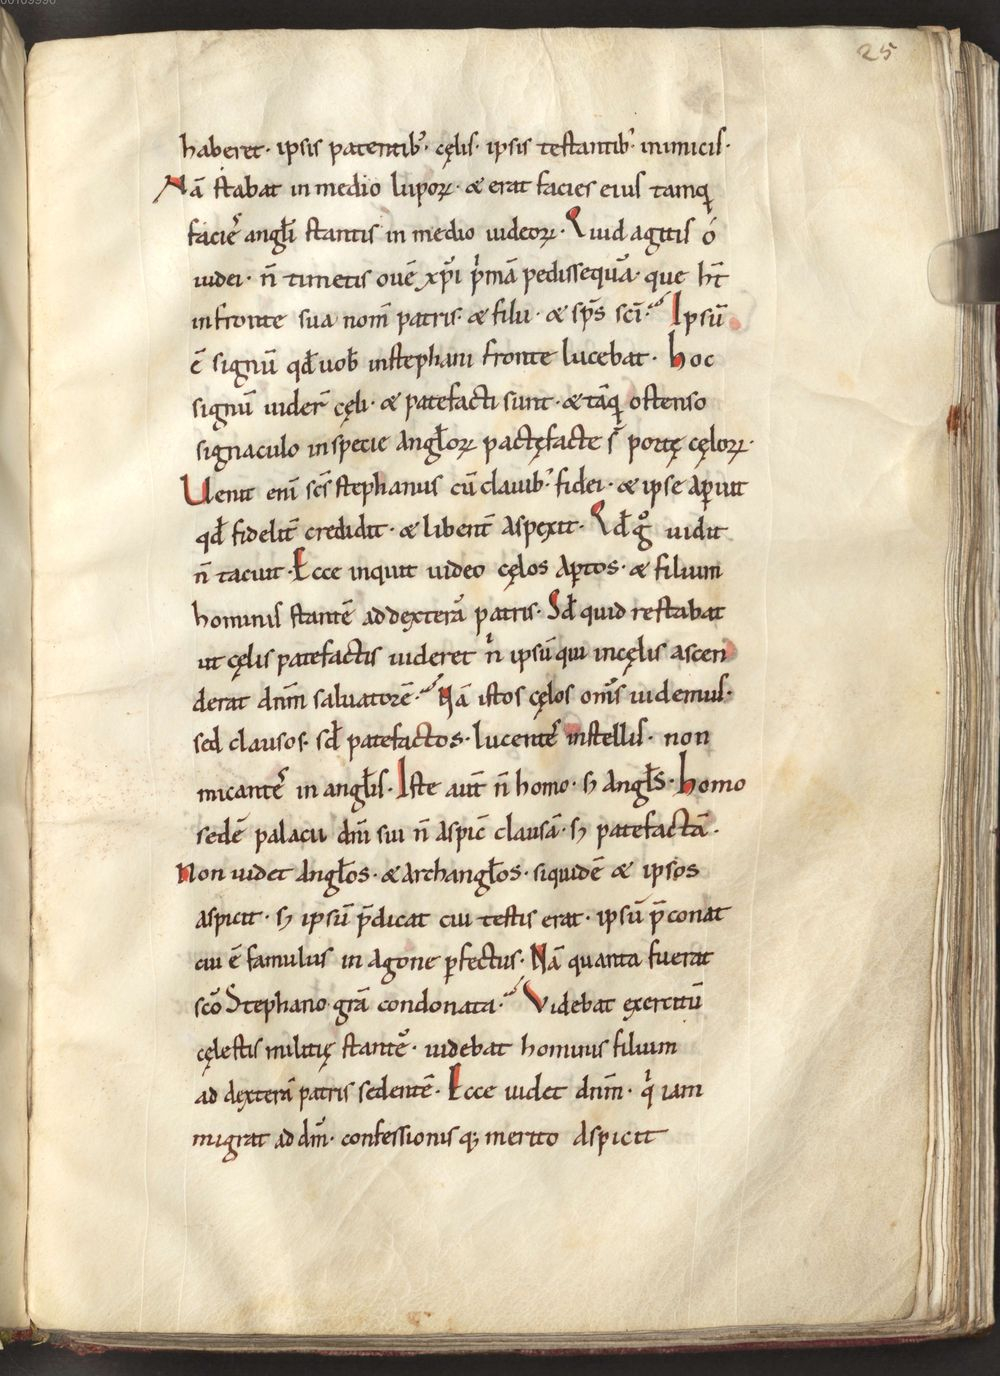 00109990
25
haberet· ipsis patentib᷒· cęlis· ipsis testantib᷒· inimicis·
Nā stabat in medio lupoꝝ· & erat facies eius tamq̄
faciē angl̄i stantis in medio iudeoꝝ· Quid agitis ó
iudei· n̄ timetis ouē xp̄i p̍mā pedissequā· que ht̄
in fronte sua nom̄ patris· & filii· & sp̄s sc̄i· Ipsū
ē signū qd̄ uob̄ in stephani fronte lucebat· hoc
signū uider̄ cęli· & patefacti sunt· & tāq̄ ostenso
signaculo in specie Angl̄oꝝ pactęfacte s̄ portę cęloꝝ·
Uenit eni̅ sc̄s stephanus cū clauib᷒· fidei· & ipse Aꝑuit
qd̄ fidelit̄ credidit· & libent̄ Aspexit· Qd̄ gͦ uidit
n̄ tacuit· Ecce inquit uideo cęlos Aꝑtos· & filium
hominis stantē ad dexterā patris· Sd̄ quid restabat
ut cęlis patefactis uideret n̍ ipsū qui in cęlis ascen
derat dn̄m saluatorē· Nā istos cęlos om̄s uidemus·
sed clausos· sd̄ patefactos· lucentē in stellis· non
micantē in angl̄is· Iste aut̄ n̄ homo· ꞩ Angl̄s· Homo
sedē palacii dn̄i sui n̄ aspic̄ clausā· ꞩ patefactā·
Non uidet Angl̄os· & Archangl̄os· siquidē & ipsos
aspicit· ꞩ ipsū p̄dicat cui testis erat· ipsū p̄conat
cui ē famulus in Agone ꝑfectus· Nā quanta fuerat
sc̄o Stephano gr̄a condonata· Videbat exercitū
cęlestis militię stantē· uidebat hominis filium
ad dexterā patris sedentē· Ecce uidet dn̄m· q̍ iam
migrat ad dn̄m· confessionis qꝫ merito Aspicit